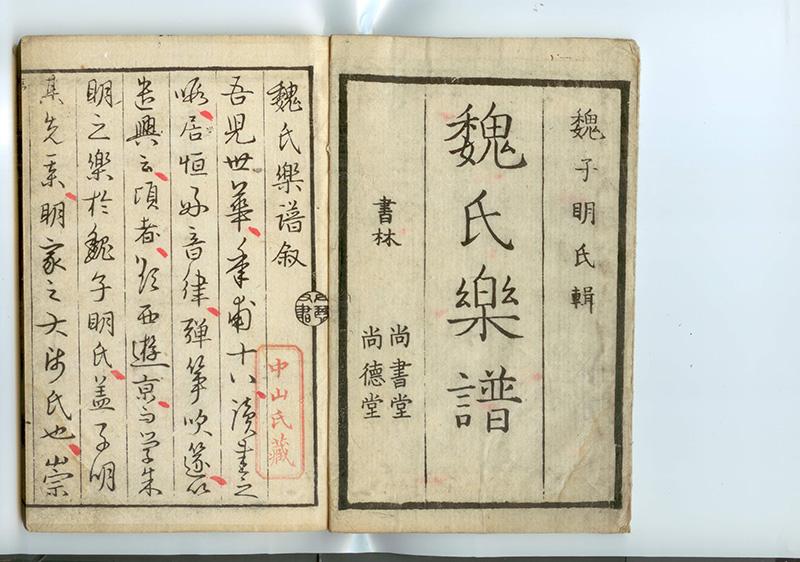 魏子明氏輯
魏氏樂譜
書林
尚書堂
尚德堂
魏氏樂譜叙
吾見世華年甫十八讀書之
暇居恒好音律彈箏吹篴以
遣興云頃者從西遊京而学朱
明之樂於魏子明氏蓋子明
其先系明家之大師氏也崇
中山氏藏